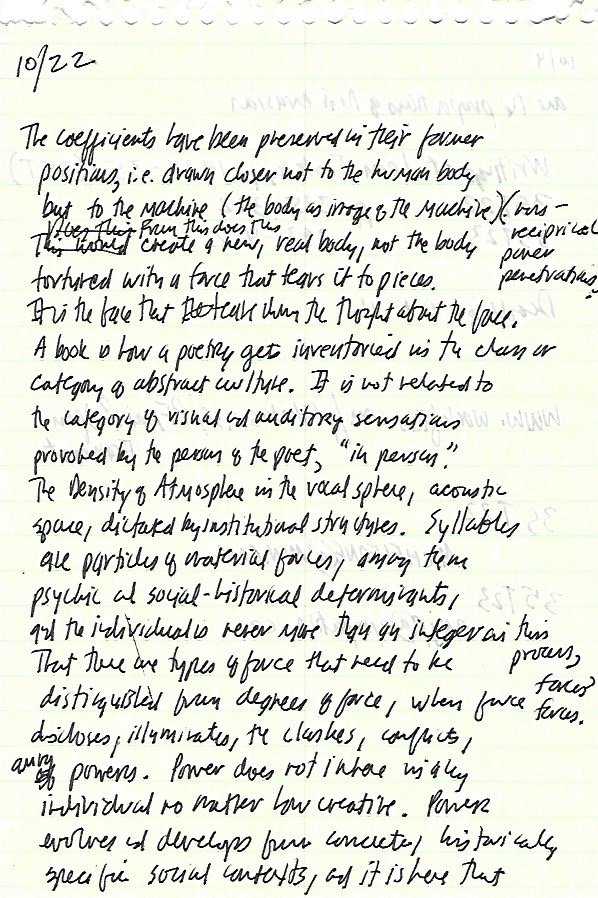 10/22
The coefficients have been preserved in their former
positions, i.e. drawn closer not to the human body
but to the machine (the body as image of the machine) (vers-
reciprical
power
penetrations.
From this does this
This would create a new, real body, not the body
tortured with a force that tears it to pieces.
It is the face that than the thought about the face.
A book is how a poetry gets inventoried in the class or
category of abstract culture. It is not related to
the category of visual and auditory sensations
provoked by the person of the poet, "in person."
The Density of Atmosphere in the vocal sphere, acoustic
space, dictated by institutional structures. Syllables
are particles of material forces, among them
psychic and social-historical determinants,
and the individual is never more than an integer in this
process,
That there are types of force that need to be
distinguished from degrees of force, when force
forces
forces.
discloses, illuminates, the clashes, conflicts,
among powers. Power does not inhere in any
individual no matter how creative. Power
evolves and develops from concrete, historically
specific social contexts, and it is here that